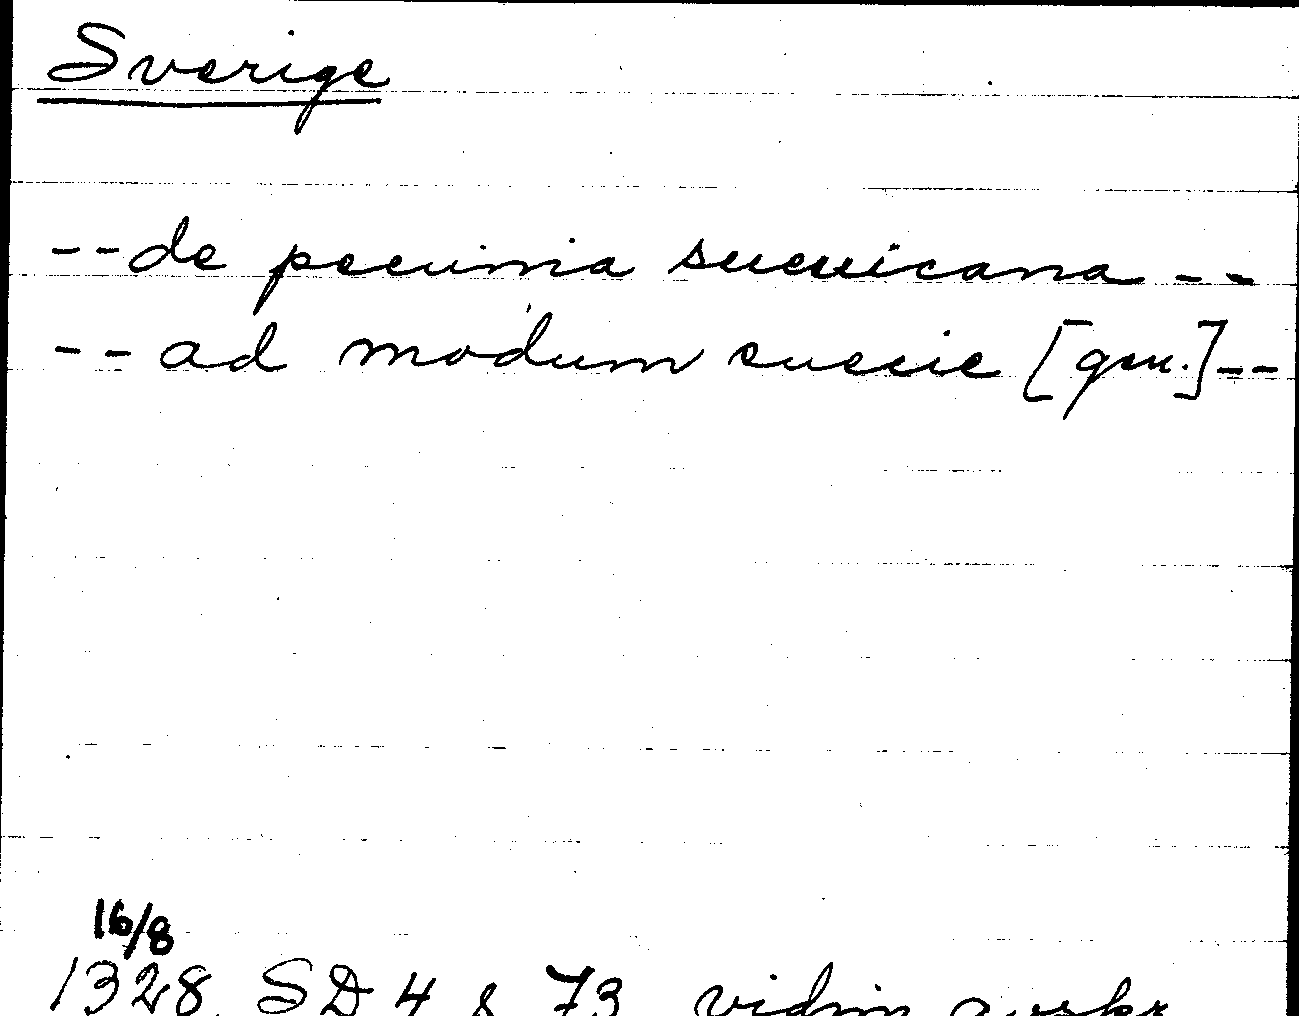 Sverige
--de pecunia sueuicana--
--ad modum suecie [gen.]--
16/8
1328 SD 4 s 73 vidim avskr